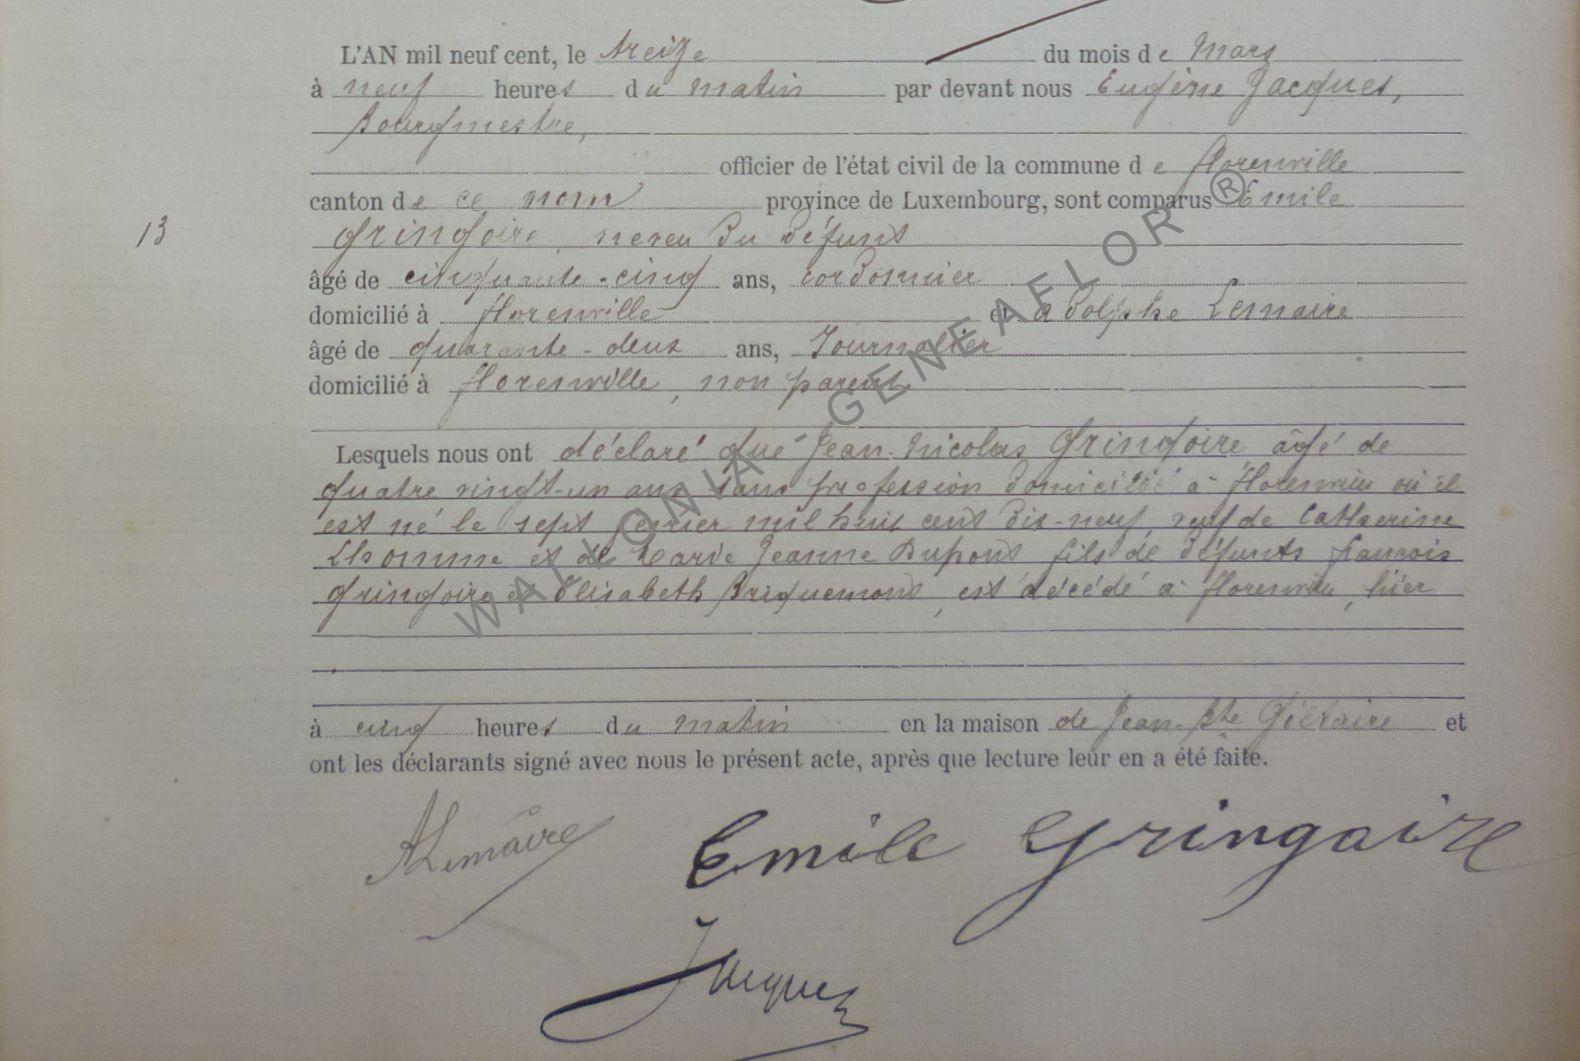 L'AN mil neuf cent, le treize du mois de Mars
à neuf heures du matin par devant nous Eugène Jacques,
Bourgmestre,
officier de l'état civil de la commune de florenville
canton de ce nom province de Luxembourg, sont comparus Emile
13 Gringoire, neveu du défunt
âgé de cinquante-cinq ans, cordonnier
domicilié à florenville et adolphe Lemaire
âgé de quarante-deux ans, Journalier
domicilié à florenville, non parent
Lesquels nous ont déclaré que Jean-Nicolas Gringoire âgé de
quatre vingt-un ans sans profession domicilié à florenville où il
est né le sept février mil huit cent dix-neuf, veuf de Catherine
Lhomme et de Marie Jeanne Dupont fils de défunts françois
Gringoire et Elisabeth Briquemont, est décédé à florenville, hier
à cinq heures du matin en la maison de Jean-Bte et
ont les déclarants signé avec nous le présent acte, après que lecture leur en a été faite.
ALemaire Emile Gringoire
Jacques
WALLONIA - GENEAFLOR ®